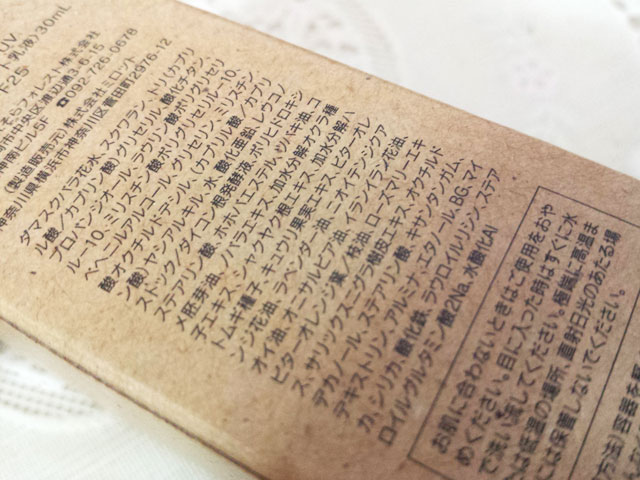 UV
ト乳液>30mL
F25
株式会社
市中央区渡辺通3-6-15
南ビル5F ☎092-726-0678
(製造販売元) 株式会社ミロット
神奈川県横浜市神奈川区菅田町2976-12
ダマスクバラ花水、スクワラン、トリ(カプリ
ル酸/カプリン酸)グリセリル、酸化チタン、
プロパンジオール、ラウリン酸ポリグリセリ
ル-10、ミリスチン酸ポリグリセリル-10、
ベヘニルアルコール、グリセリン、ミリスチン
酸オクチルドデシル、(カプリル酸/カプリ
ン酸)ヤシアルキル、水、酸化亜鉛、レウコノ
ストック/ダイコン根発酵液、ポリヒドロキシ
ステアリン酸、ホホバエステル、ツバキ油、コ
メ胚芽油、ノバラエキス、加水分解オクラ種
子エキス、シャクヤク根エキス、加水分解ハ
トムギ種子、キュウリ果実エキス、ビターオレ
ンジ花油、ラベンダー油、ニオイテンジクア
オイ油、オニサルビア油、イランイラン花油、
ビターオレンジ葉/枝油、ローズマリーエキ
ス、サリックスニグラ樹皮エキス、オクチルド
デカノール、ステアリン酸、キサンタンガム、
デキストリン、アルミナ、エタノール、BG、マイ
カ、シリカ、酸化鉄、ラウロイルリシン、ステア
ロイルグルタミン酸2Na、水酸化Al
お肌に合わないときはご使用をおや
めください。目に入った時はすぐに水
で洗い流してください。極端に高温ま
は低温の場所、直射日光のあたる場
には保管しないでください。